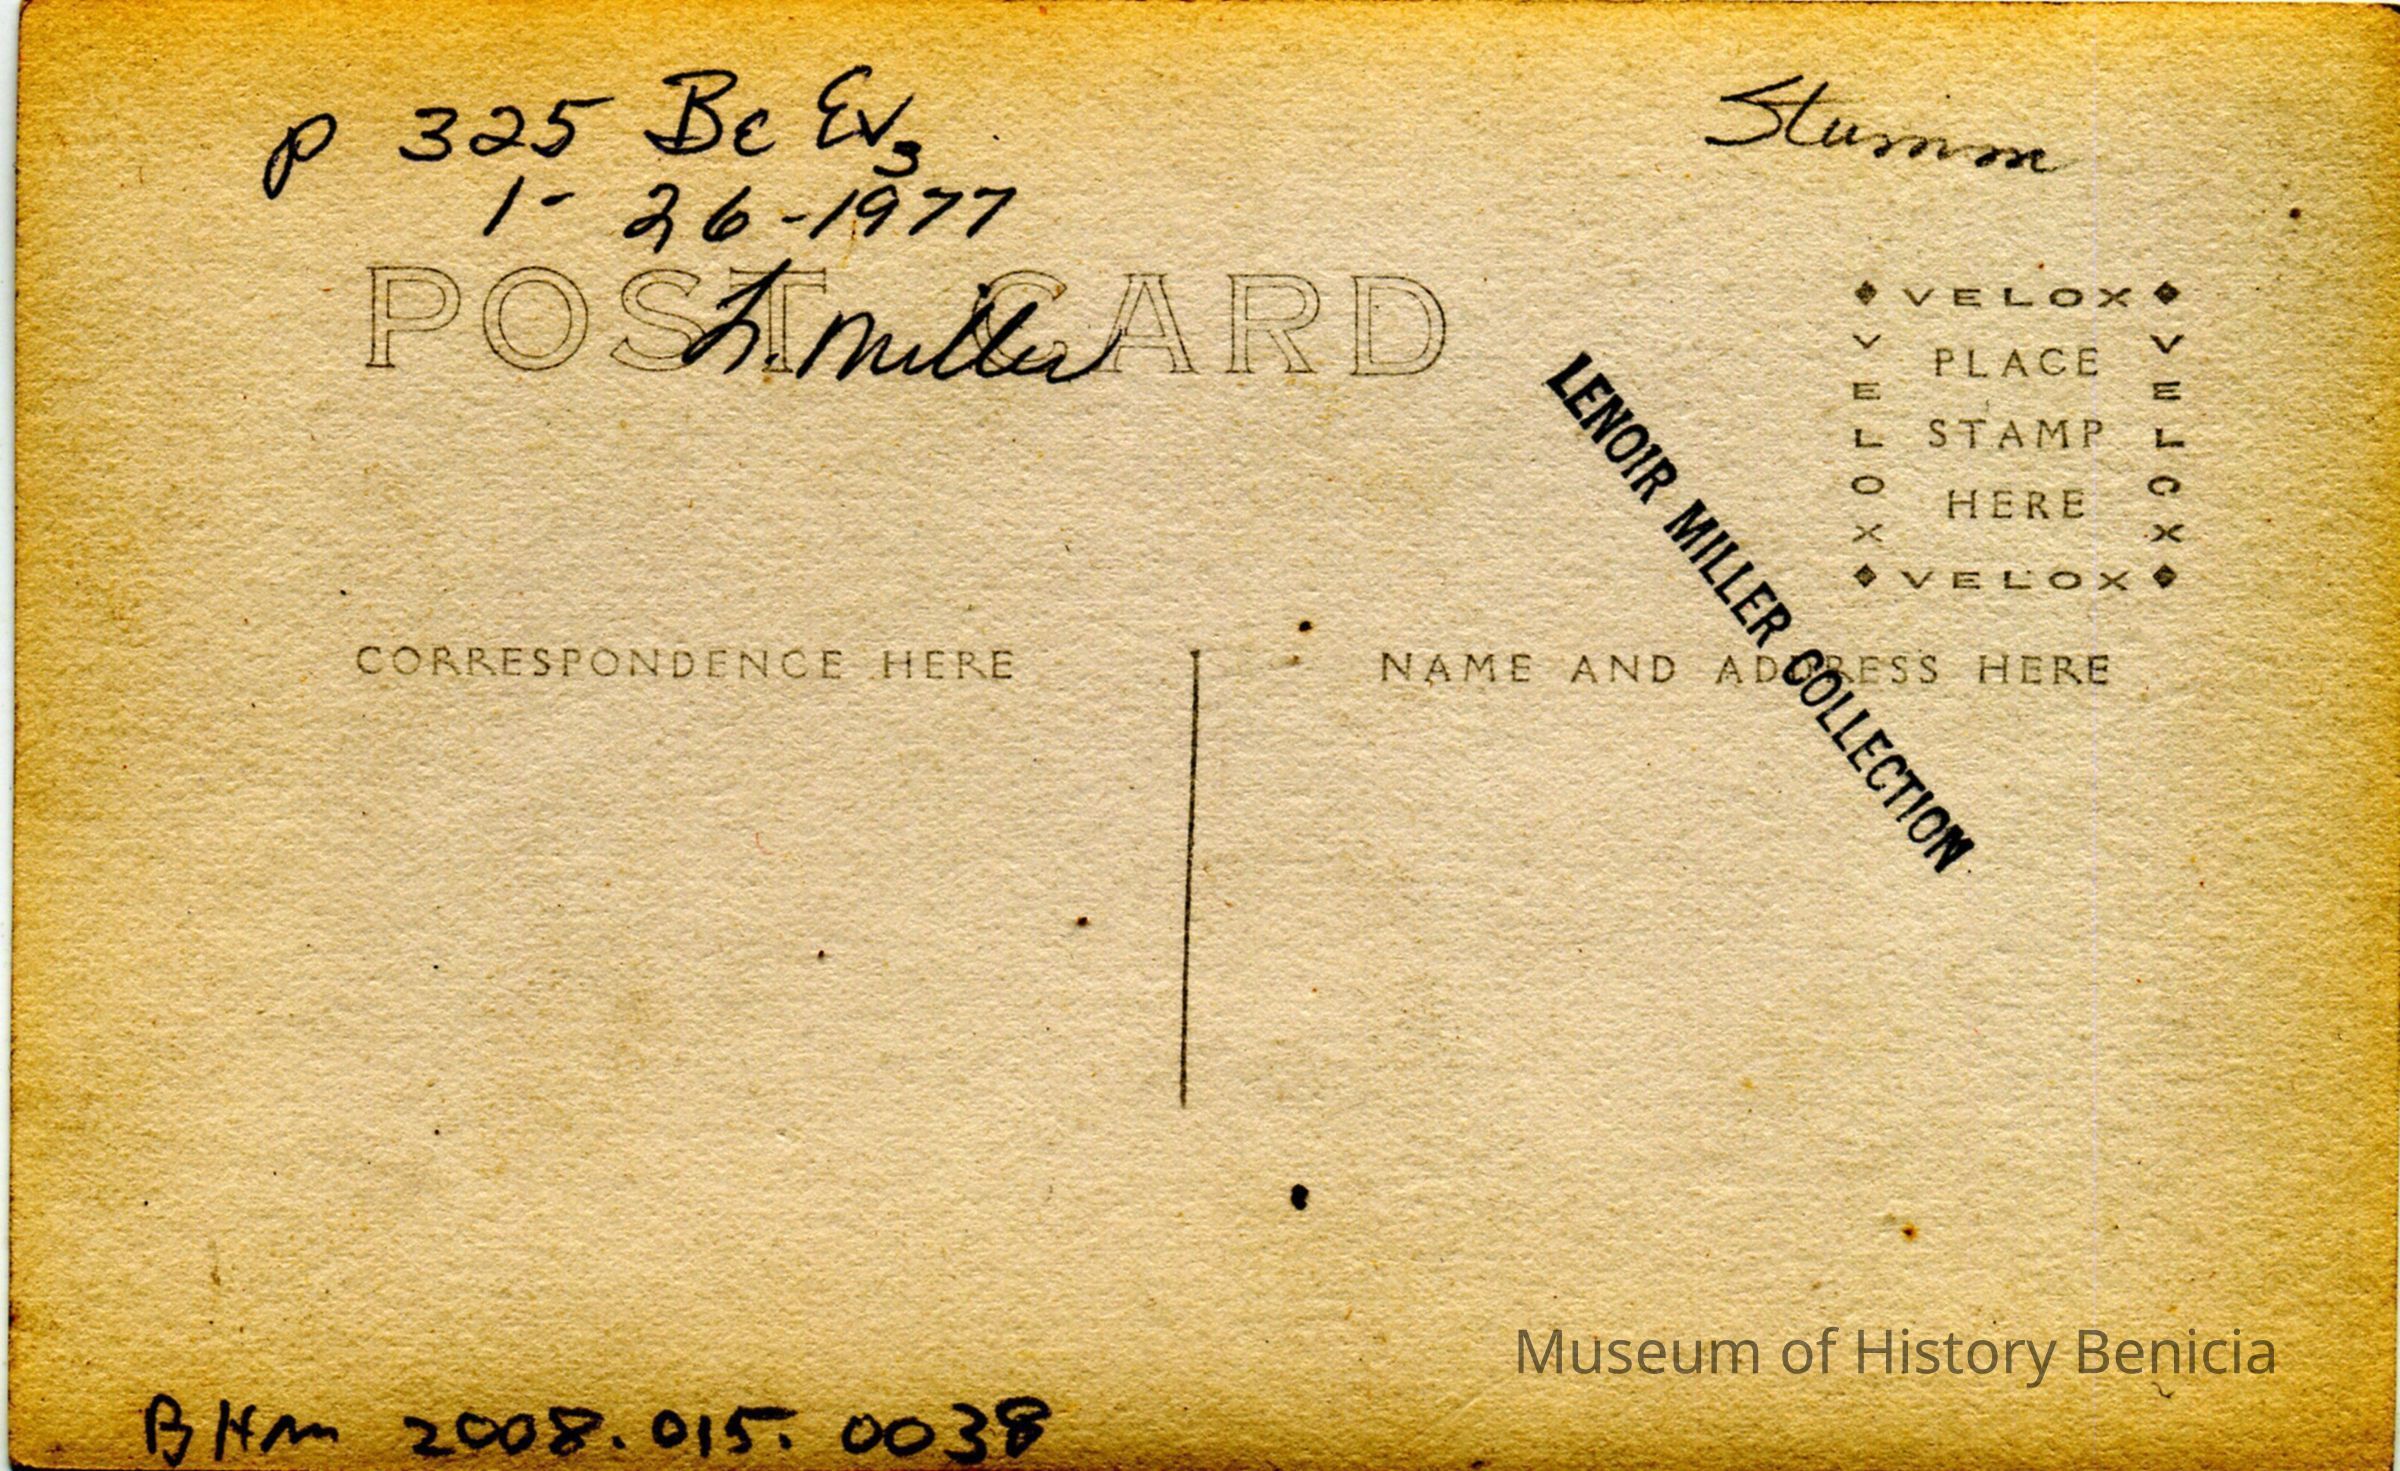 P 325 Be Ev3
1-26-1977
L. Miller
Stumm
POST CARD
VELOX
VELOX
PLACE
STAMP
HERE
VELOX
VELOX
LENOIR MILLER COLLECTION
CORRESPONDENCE HERE
NAME AND ADDRESS HERE
Museum of History Benicia
BHM 2008.015.0038